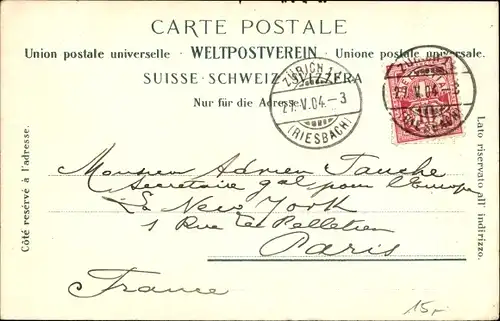 CARTE POSTALE
Union postale universelle · WELTPOSTVEREIN · Unione postale universale.
SUISSE · SCHWEIZ · SVIZZERA
Nur für die Adresse.
ZÜRICH
V.04.–3
(RIESBACH)
ZÜRICH
V.04.–3
(RIESBACH)
10
Côté réservé à l'adresse.
Lato riservato all' indirizzo.
Monsieur Adrien Tauche
Secretaire gal pour l'Europe
La New York
1 Rue Le Pelletier
Paris
France
15,-